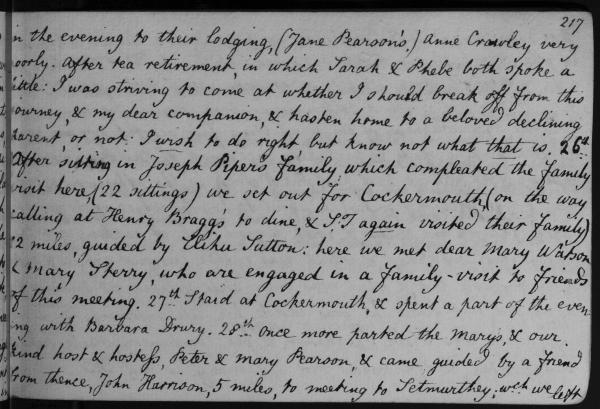 217
in the evening to their lodging, (Jane Pearson's.) Anne Crawley very
poorly. After tea retirement, in which Sarah & Phebe both spoke a
little: I was striving to come at whether I should break off from this
journey, & my dear companion, & hasten home to a beloved declining
parent, or not: I wish to do right, but know not what that is. 26th
After sitting in Joseph Piper's family, which compleated the family
visit here, (22 sittings) we set out for Cockermouth, (on the way
calling at Henry Bragg's to dine, & S.T again visited their family)
12 miles, guided by Elihu Sutton: here we met dear Mary Watson
& Mary Sterry, who are engaged in a family-visit to friends
of this meeting. 27th Staid at Cockermouth, & spent a part of the even-
ing with Barbara Drury. 28th once more parted the Marys, & our
kind host & hostess, Peter & Mary Pearson, & came guided by a friend
from thence, John Harrison, 5 miles, to meeting to Setmurthey; wch we left